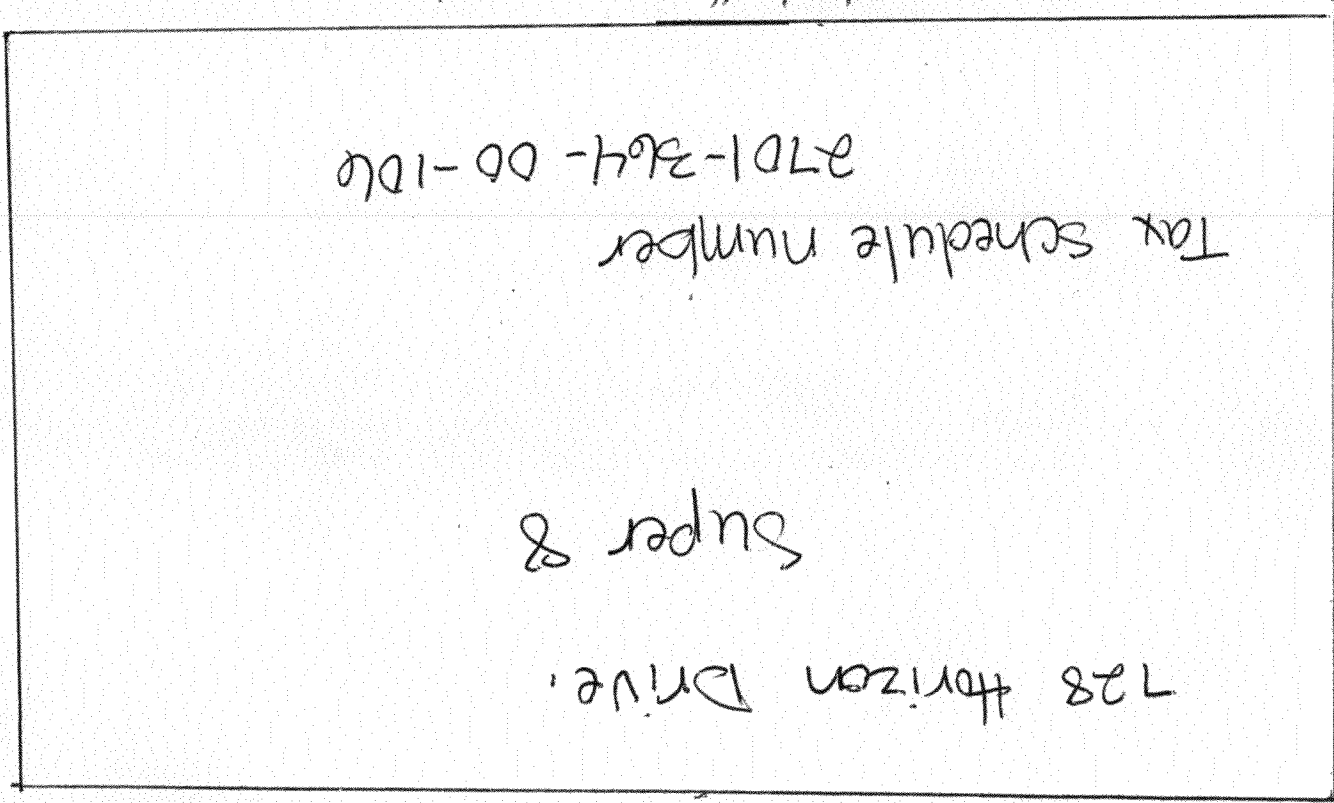 728 Horizon Drive.
Super 8
Tax Schedule number
2701-364-00-106